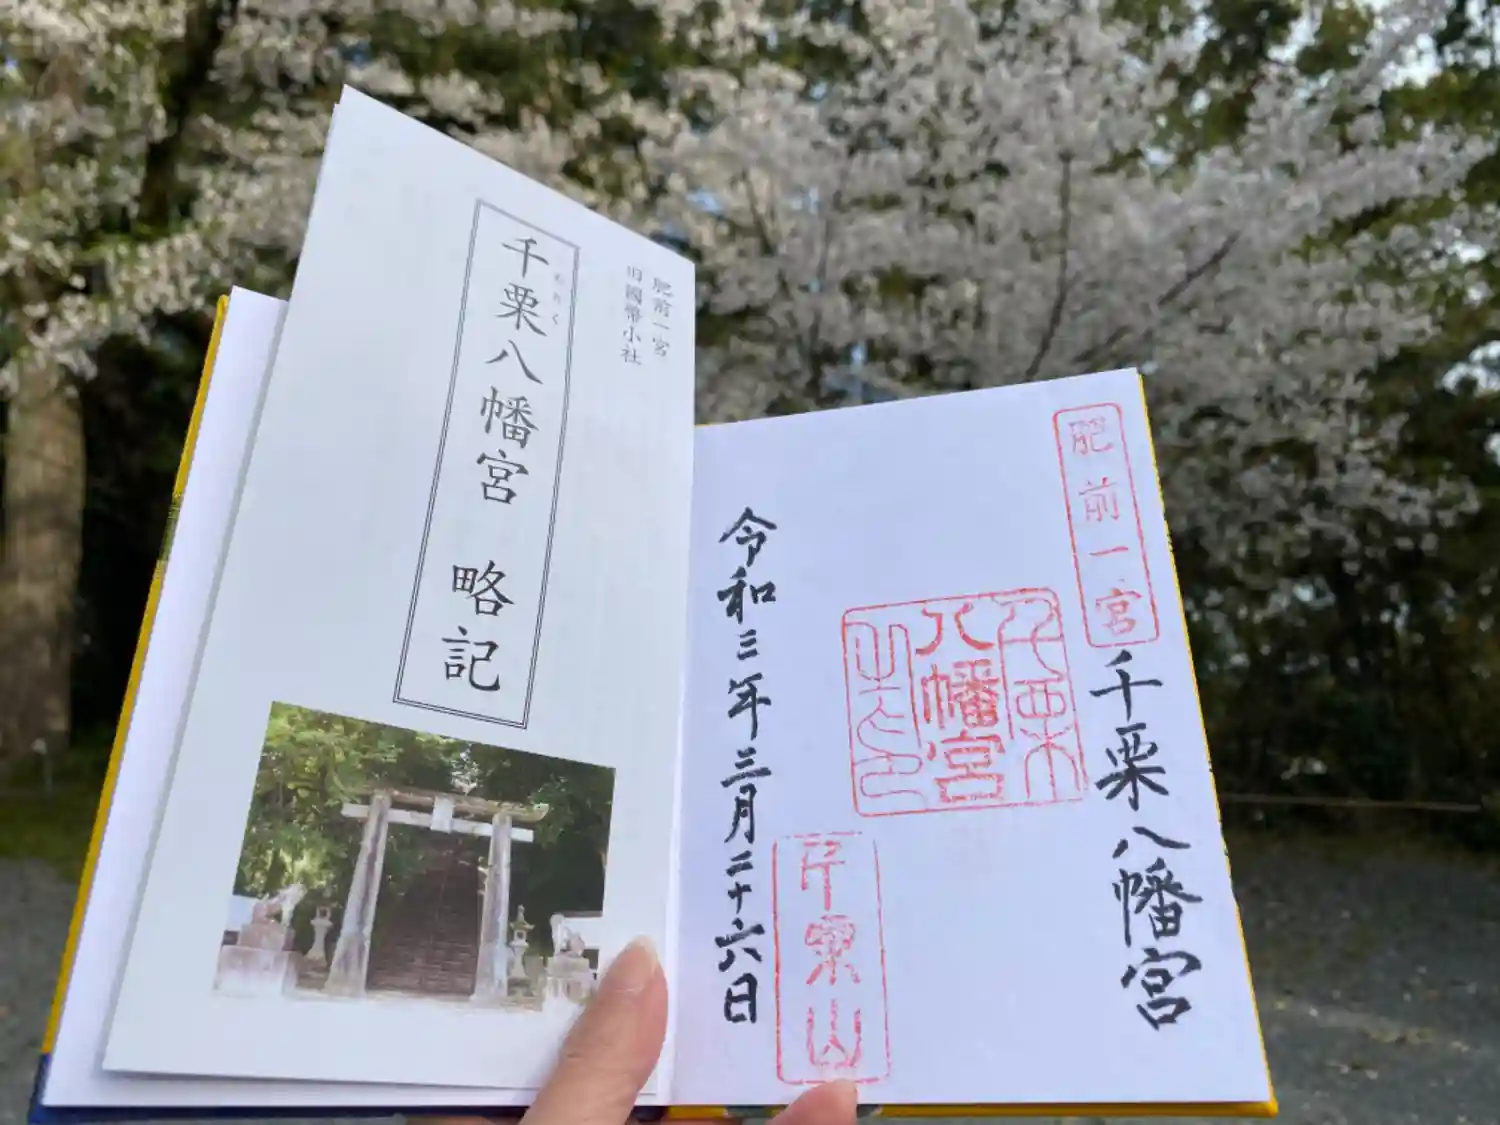 肥前一宮
旧國幣小社
千栗八幡宮 略記
ちりく
肥前一宮
千栗八幡宮
千栗
八幡宮
千栗山
令和三年三月二十六日